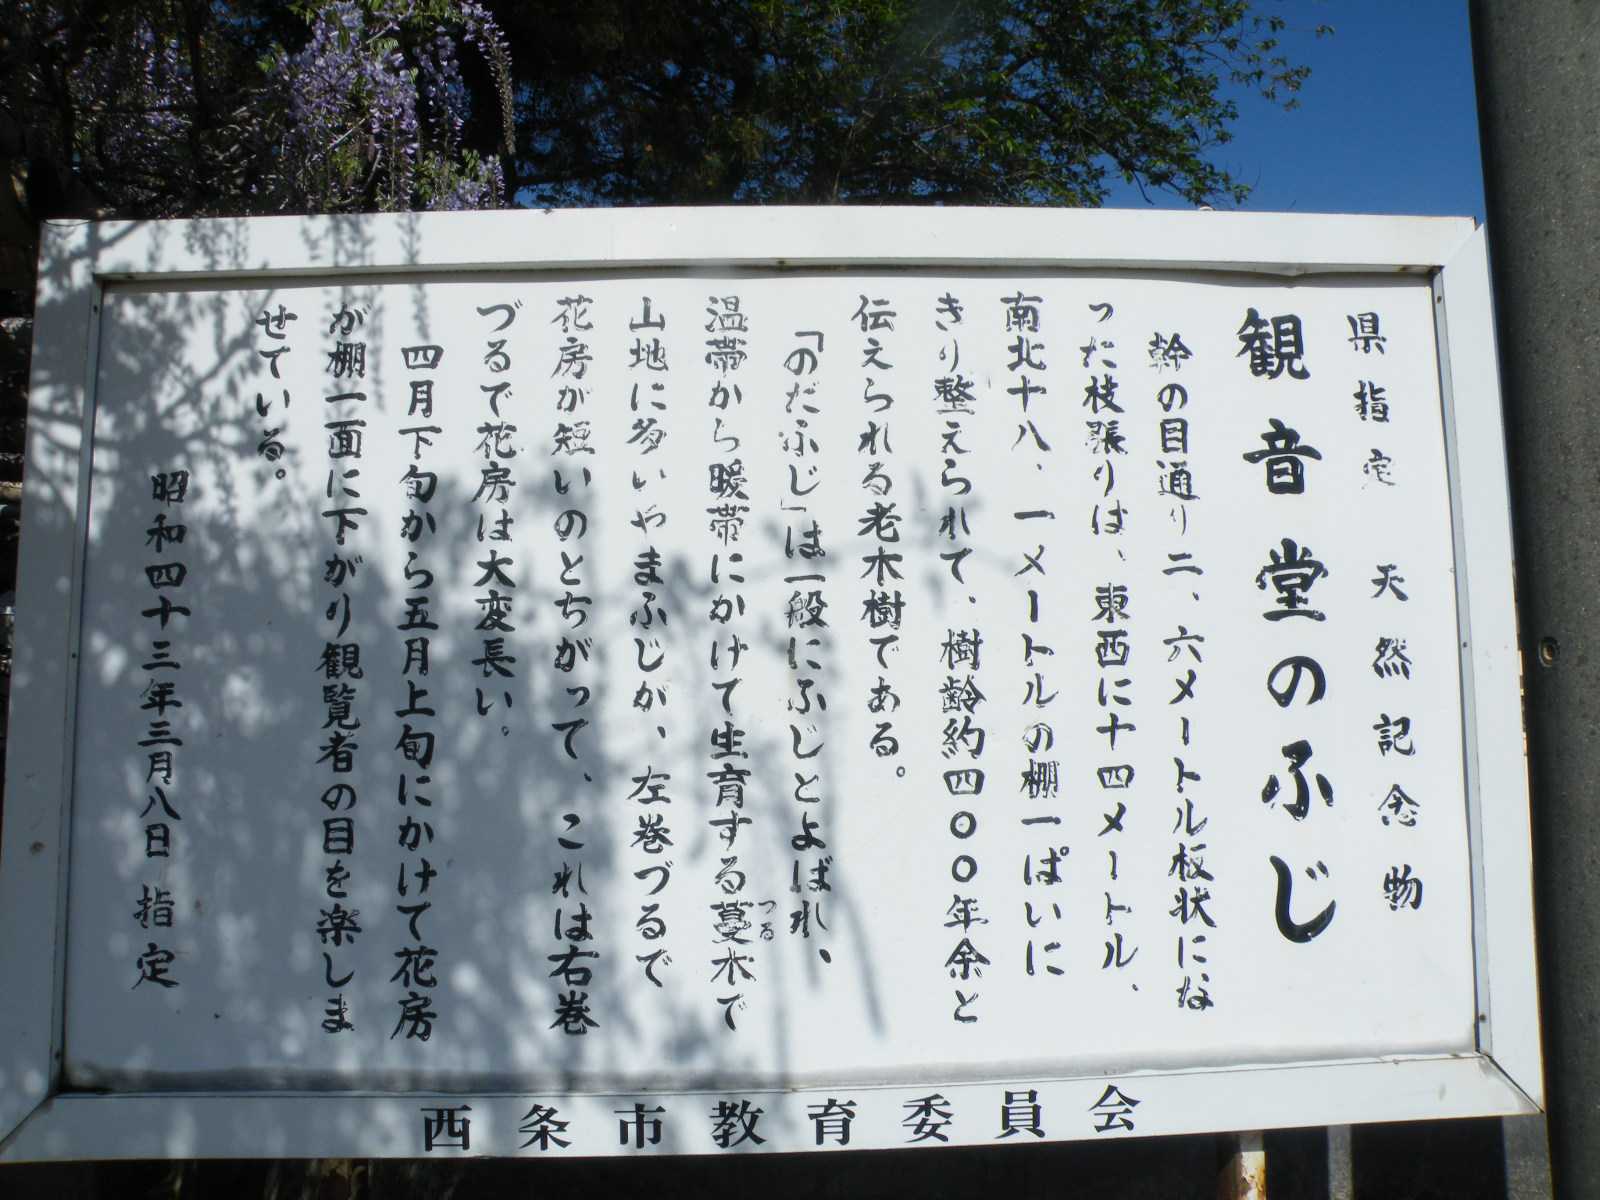 県指定 天然記念物
観音堂のふじ
幹の目通り二、六メートル板状にな
った枝張りは、東西に十四メートル、
南北十八、一メートルの棚一ぱいに
きり整えられて、樹齢約四〇〇年余と
伝えられる老木樹である。
「のだふじ」は一般にふじとよばれ、
温帯から暖帯にかけて生育する蔓木で
つる
山地に多いやまふじが、左巻づるで
花房が短いのとちがって、これは右巻
づるで花房は大変長い。
四月下旬から五月上旬にかけて花房
が棚一面に下がり観覧者の目を楽しま
せている。
昭和四十三年三月八日 指定
西条市教育委員会